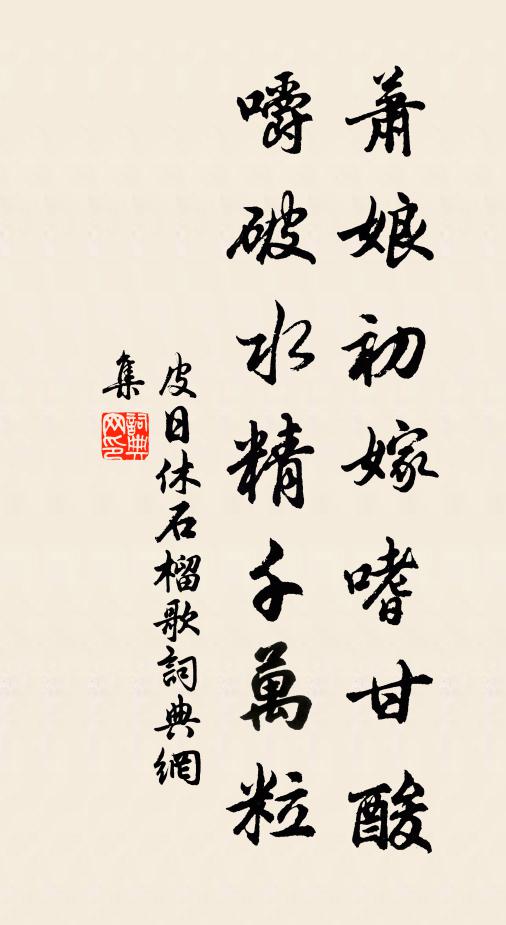 蕭娘初嫁嗜甘酸
嚼破水精千萬粒
皮日休石榴歌詞典網
集
詞典
网印